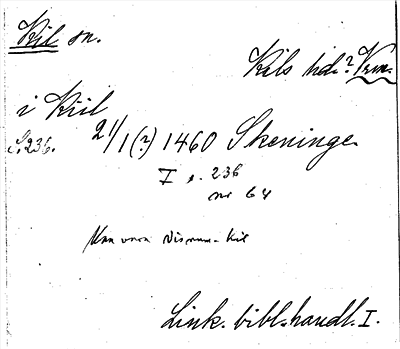 Kil sn.
Kils hd.? Vrm.
i Kiil
S. 236.
21/1 (?) 1460 Skeninge
I s. 236
nr 64
Kan vara Kil
Link. bibl. handl. I.